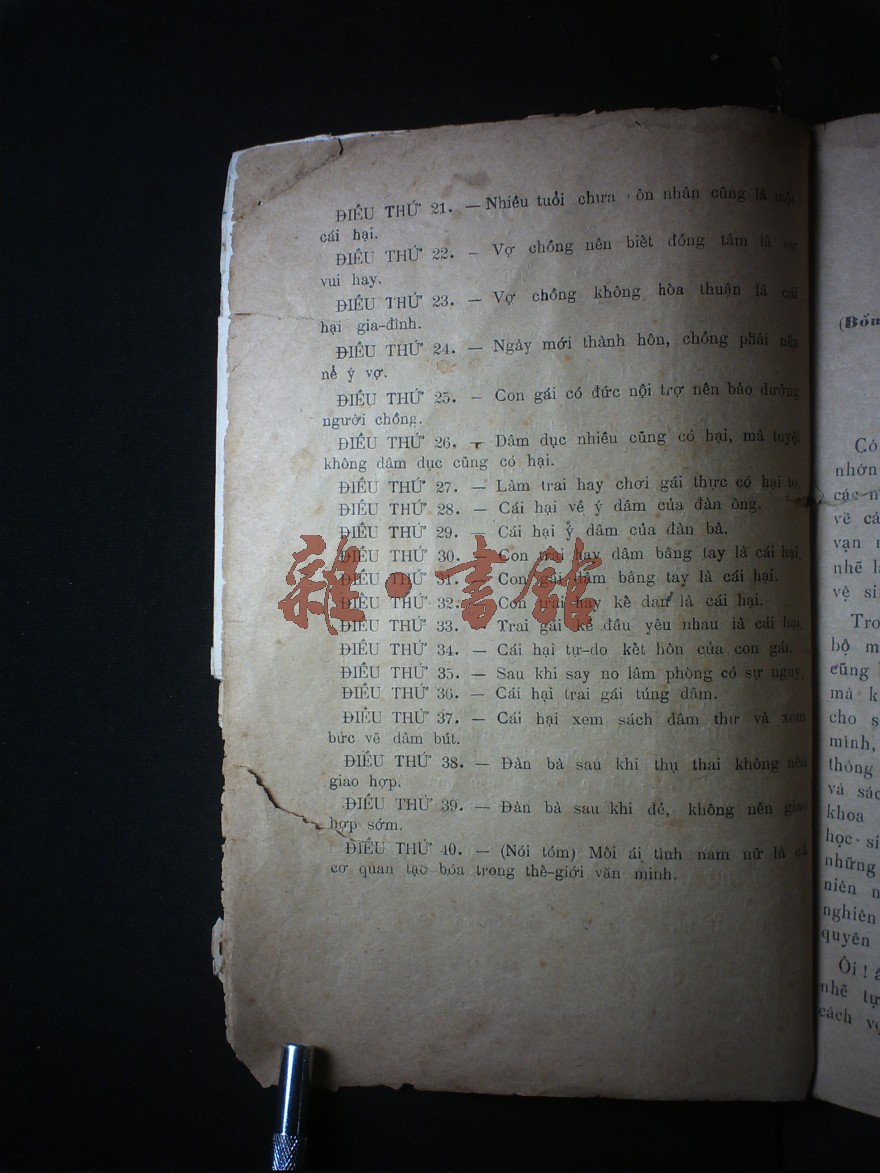 ĐIỀU THỨ 21. — Nhiều tuổi chưa ôn nhân cũng là một
cái hại.
ĐIỀU THỨ 22. — Vợ chồng nên biết đồng tâm là sự
vui hay.
ĐIỀU THỨ 23. — Vợ chồng không hòa thuận là cái
hại gia-đình.
ĐIỀU THỨ 24. — Ngày mới thành hôn, chồng phải nên
nể ý vợ.
ĐIỀU THỨ 25. — Con gái có đức nội trợ nên bảo dưỡng
người chồng.
ĐIỀU THỨ 26. — Dâm dục nhiều cũng có hại, mà tuyệt
không dâm dục cũng có hại.
ĐIỀU THỨ 27. — Làm trai hay chơi gái thực có hại to.
ĐIỀU THỨ 28. — Cái hại về ý dâm của đàn ông.
ĐIỀU THỨ 29. — Cái hại ý dâm của đàn bà.
ĐIỀU THỨ 30. — Con trai hay dâm bằng tay là cái hại.
ĐIỀU THỨ 31. — Con gái dâm bằng tay là cái hại.
ĐIỀU THỨ 32. — Con trai hay kê dan là cái hại.
ĐIỀU THỨ 33. — Trai gái kề đầu yêu nhau là cái hại.
ĐIỀU THỨ 34. — Cái hại tự-do kết hôn của con gái.
ĐIỀU THỨ 35. — Sau khi say no lâm phòng có sự nguy.
ĐIỀU THỨ 36. — Cái hại trai gái túng dâm.
ĐIỀU THỨ 37. — Cái hại xem sách dâm thư và xem
bức vẽ dâm bút.
ĐIỀU THỨ 38. — Đàn bà sau khi thụ thai không nên
giao hợp.
ĐIỀU THỨ 39. — Đàn bà sau khi đẻ, không nên giao
hợp sớm.
ĐIỀU THỨ 40. — (Nói tóm) Mối ái tình nam nữ là cả
cơ quan tạo hóa trong thế-giới văn minh.
雜•書館
(Bổn
Có
nhớn
các n
về cá
vạn
nhẽ là
vệ si
Tro
bộ m
cũng
mà k
cho s
mình,
thông
và sác
khoa
học-si
những
niên n
nghiên
quyên
Ôi !
nhẽ tự
cách vợ